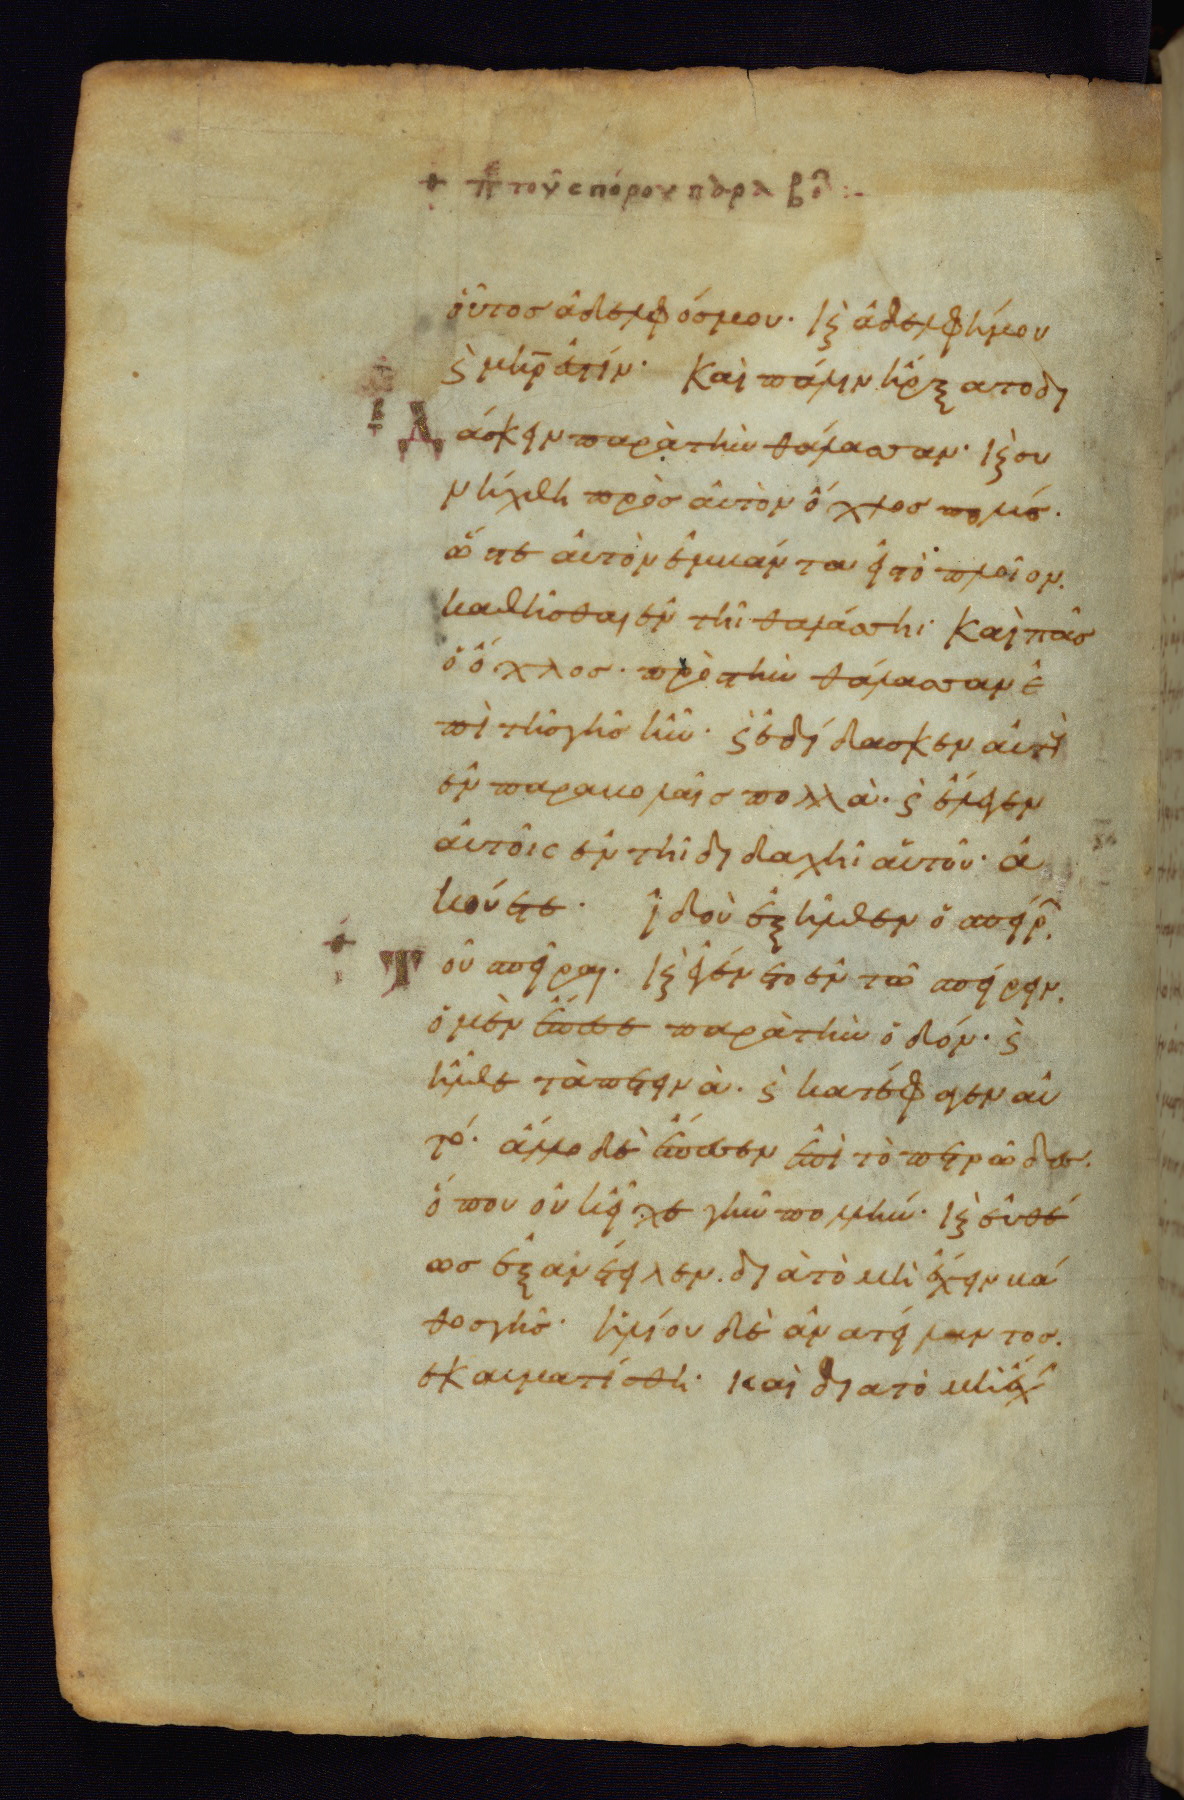 π τοῦ σπόρου παραβο
οὗτος ἀδελφός μου· κ ἀδελφή μου
κ μηρ ἐστίν· Καὶ πάλιν ἤρξατο δι
δάσκειν παρὰ τὴν θάλασσαν· κ συ
νήχθη πρὸς αὐτὸν ὄχλος πολύς·
ὥστε αὐτὸν ἐμβάντα εἰς τὸ πλοῖον.
καθῆσθαι ἐν τῆι θαλάσσηι· Καὶ πᾶσ
ὁ ὄχλος· πρὸς τὴν θάλασσαν ἐ
πὶ τῆς γῆς ἦν· κ ἐδίδασκεν αὐτοὺς
ἐν παραβολαῖς πολλὰ· κ ἔλεγεν
αὐτοῖς ἐν τῆι διδαχῆι αὐτοῦ· ἀ
κούετε· ἰδοὺ ἐξῆλθεν ὁ σπείρ
τοῦ σπεῖραι· κ ἐγένετο ἐν τῶ σπείρειν.
ὁ μὲν ἔπεσε παρὰ τὴν ὁδόν· κ
ἦλθε τὰ πετεινὰ· κ κατέφαγεν αὐ
τό· ἄλλο δὲ ἔπεσεν ἐπὶ τὸ πετρῶδες.
ὅπου οὐκ εἶχε γῆν πολλήν· κ εὐθέ
ως ἐξανέτειλεν. διὰ τὸ μὴ ἔχειν βά
θος γῆς· ἡλίου δὲ ἀνατείλαντος.
ἐκαυματίσθη· καὶ διὰ τὸ μὴ ἔχ